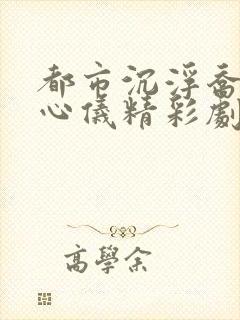 都市沉浮喬
心儀精彩劇
高學余